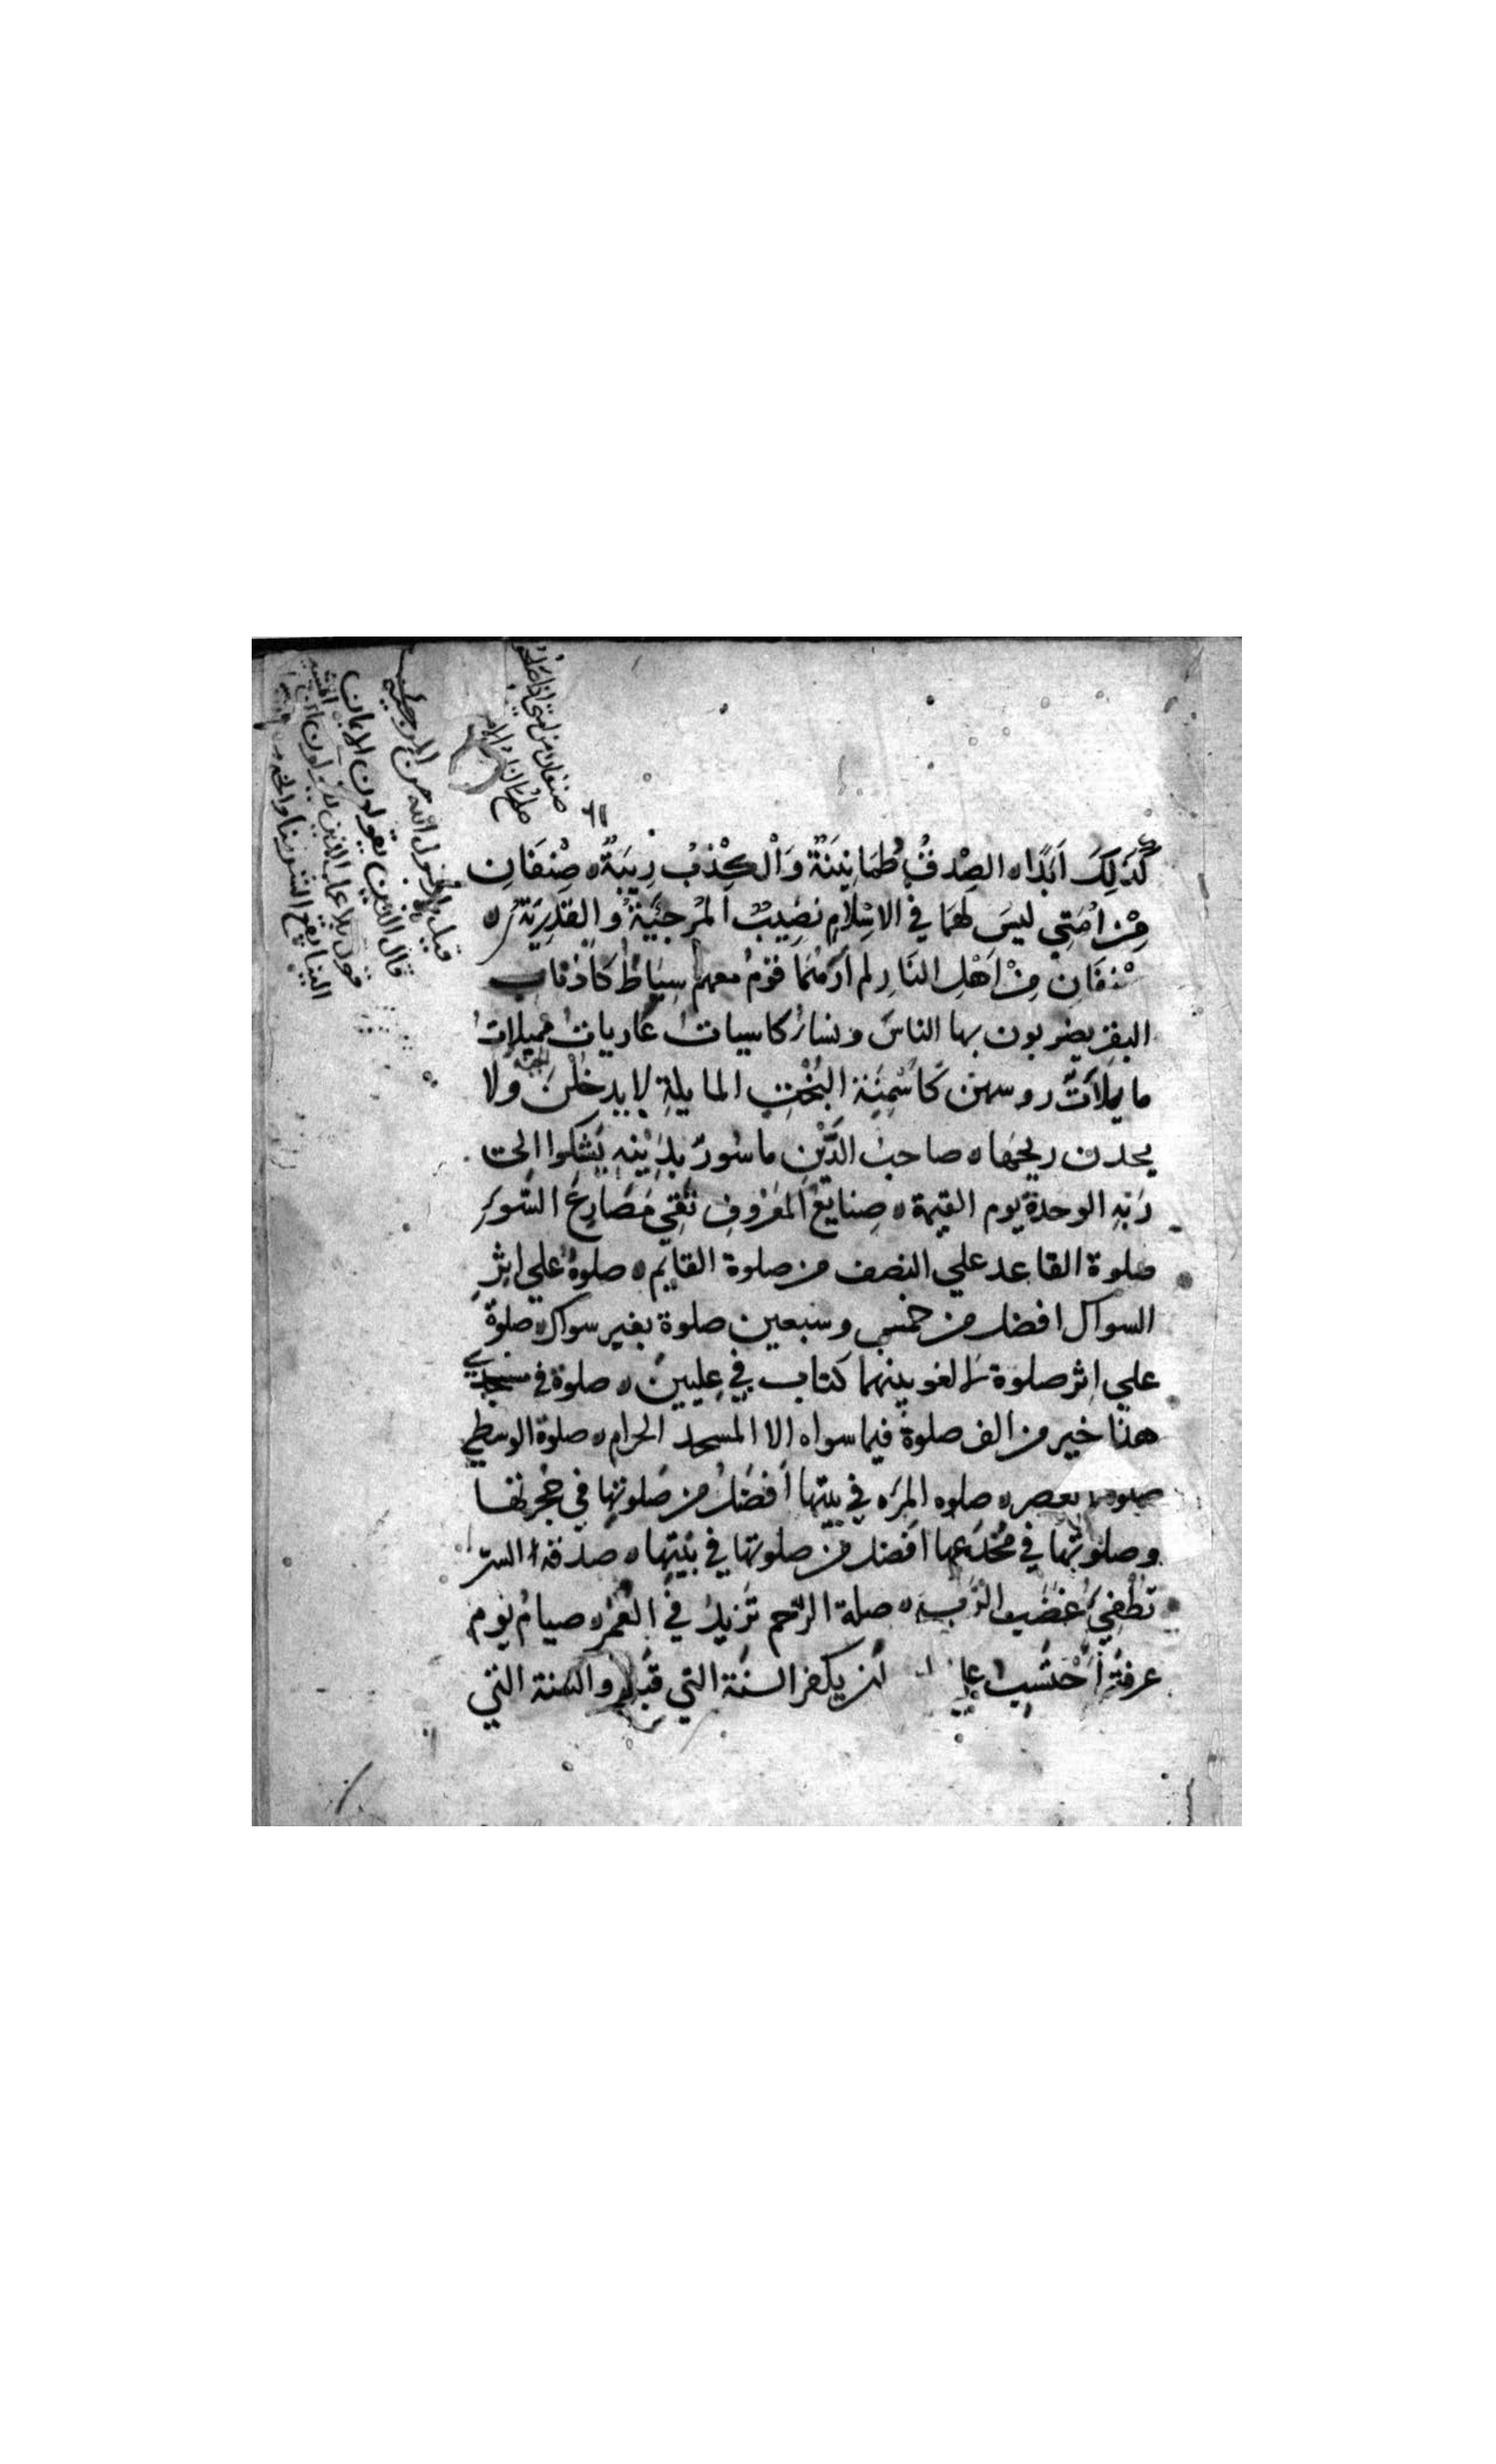 صنفان من امتي اذا صلحوا
صلح الناس
٦١
قيل يا رسول الله من المرجئة
قال الذين يقولون الايمان
قول بلا عمل
كَذلِكَ اَبَدًا ه الصِدقُ طُمَانِينَةٌ وَالْكِذْبُ رِيبَةٌ ه صِنفَانِ
مِنْ اُمَتِي ليسَ لهَمَا فِي الاِسْلَامِ نصَيِبٌ المُرجِئَيةُ وُالقَدَرِيَةُ ه
صنْفَانِ مِنْ اَهْلِ النَارِ لم اَرَهُمَا قومٌ معهم سِيَاطٌ كَاَذنَابِ
البقر يضربون بها الناسَ ونساءٌ كاسياتٌ عَارياتٌ مميلاتٌ
مايلاَتٌ روسهن كَاَسْنِمَة البُخْتِ المايلةِ لا يدخلْنَ الجنة ولا
يجدن ريحها ه صاحبُ الدَّيْنِ ماسُورٌ بِدَيْنِهِ يَشكوا الى
رَبِّهِ الوحدةَ يوم القيمة ه صنايعُ المَعْروُفِ تَقِي مَصَارِعَ السُّوءِ
صلوة القاعد علي النصف من صلوة القايم ه صلوةٌ علي اِثرِ
السواك افضل من خمس وسبعين صلوة بغير سواك ه صلوةٌ
علي اِثر صلوة لا لغو بينهما كتاب في عِليين ه صلوة في مسجدي
هذا خير من الف صلوة فيما سواه الا المسجد الحرام ه صلوة الوسطي
صلوة العصر ه صلوه المرَه في بيتها اَفضَلُ من صَلوتِها في حُجْرتها
وصلوتُها في مُخْدَعِها افضل من صلوتها في بَيْتِها ه صدقة السر
تُطْفِيُ غضَب الرَّبِ ه صلة الرَّحم تَزيدُ في العُمُر ه صيامُ يَوم
عرفةَ اَحْتَسِب علي الله ان يكفر السنَة التي قَبله والسَنة التي